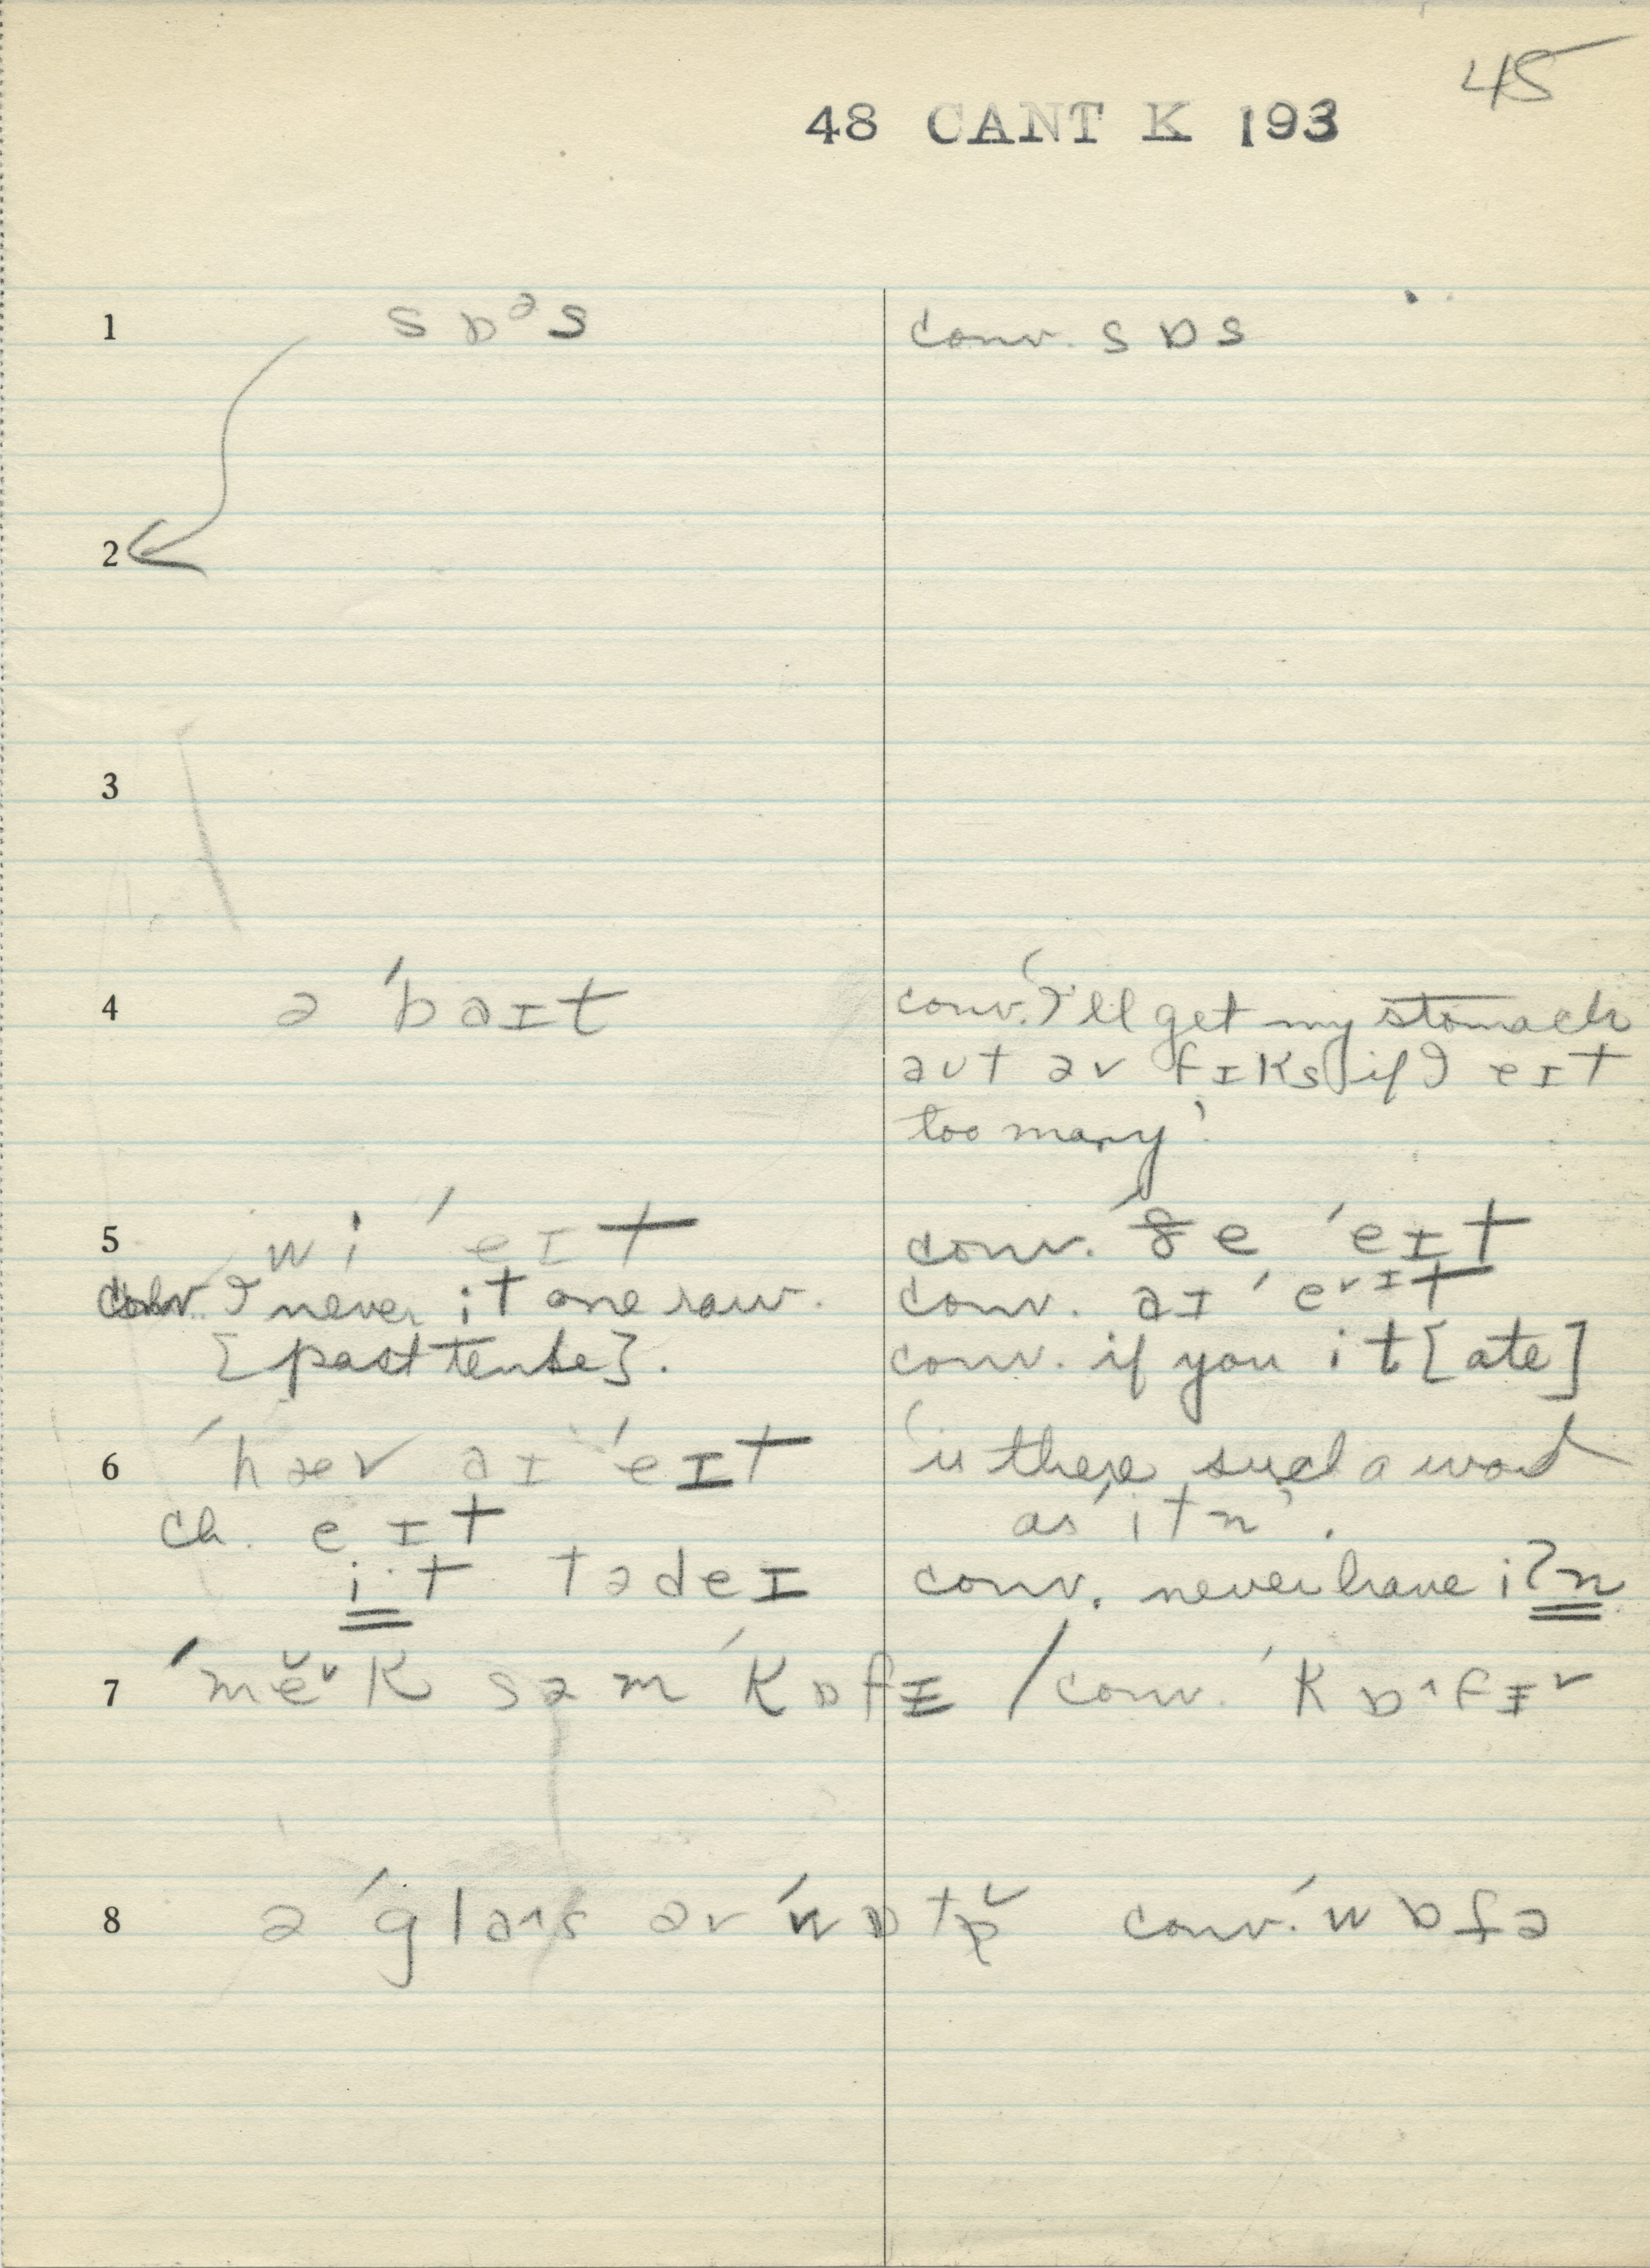 45
48 CANT K 193
1 sɒᵊs conv. sɒs
2
3
4 ə ˈbaɪt conv. 'I'll get my stomach
aut əv fɪks if I eɪt
too many'
5 wi ˈeɪt conv. ˈðe ˈeɪt
conv. I never it one raw. conv. aɪ ˈe˅ɪt
[past tense]. conv. if you it [ate]
6 ˈhæv aɪ ˈeɪt 'is there such a word
ch. eɪt as itn'.
it tədeɪ conv. never have iʔn
7 ˈmĕ˅k səm ˈkɒfɪ / conv. ˈkɒ˄fɪ˅
8 ə ˈgla˄s əv ˈwɒtɚ̆ conv. ˈwɒtə